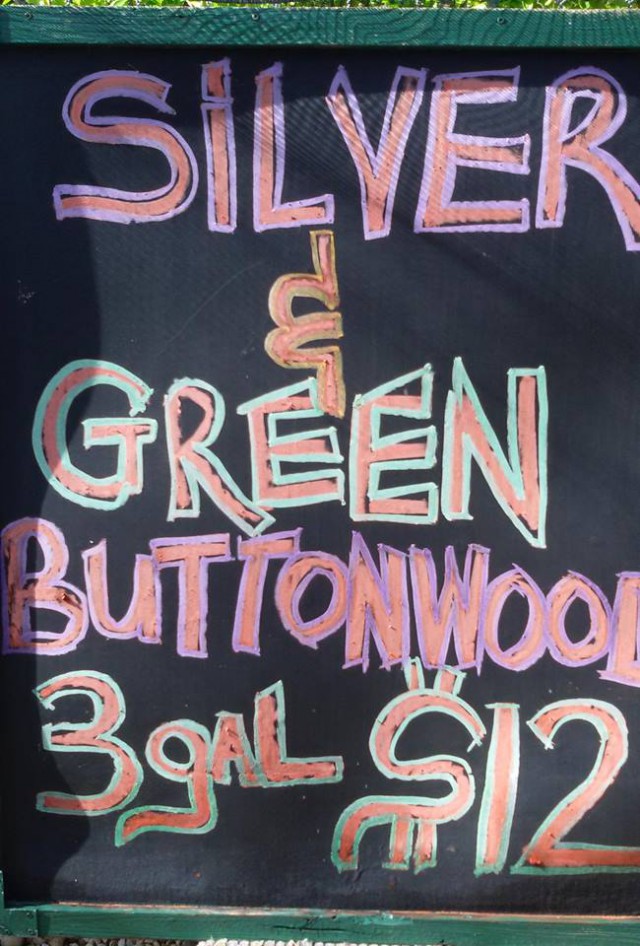 SiLVER
&
GREEN
BUTTONWOOD
3 gAL $12